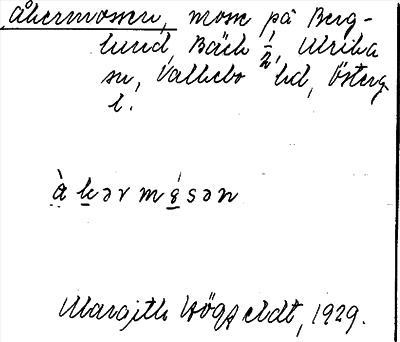 Åkermossen, mosse på Berg-
lund, Bäck 1/2, Ulrika
sn, Valkebo hd, Österg
l.
å̀kərmósən
Margith Högfeldt, 1929.